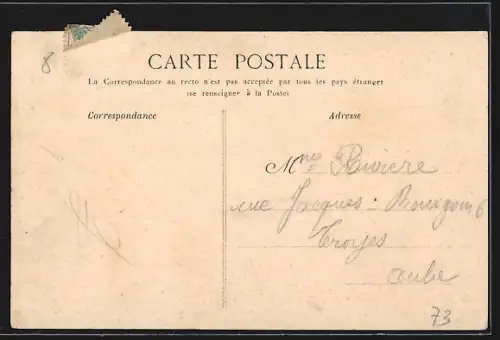 8
CARTE POSTALE
La Correspondance au recto n'est pas acceptée par tous les pays étranger
(se renseigner à la Poste)
Correspondance
Adresse
Mmes Rivière
rue Jacques
Troyes
Aube
73